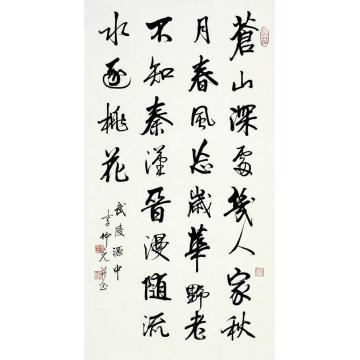 蒼山深處幾人家秋
月春風忘歲華野老
不知秦漢晉漫随流
水逐桃花
武陵源中
李仲元并書